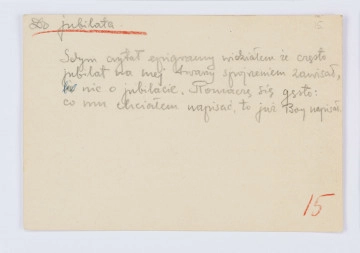 Do jubilata.
Gdym czytał epigramy widziałem że często
jubilat na mej twarzy spojrzeniem zawisał,
że nic o jubilacie. Tłomaczę się gęsto:
co mu chciałem napisać, to już Boy napisał.
15